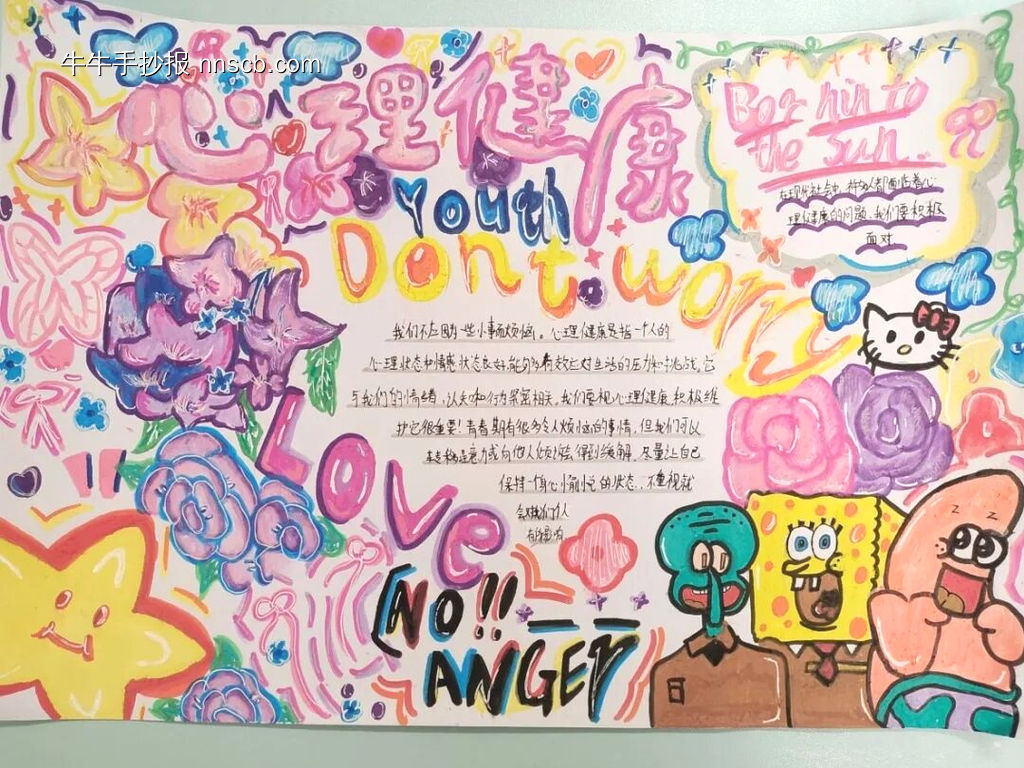 牛牛手抄报 nnscb.com
心理健康
Youth
Don't worry
to
the sun
在现代社会中,许多人都面临着心
理健康的问题,我们要积极
面对
我们不应因为一些小事而烦恼。心理健康是指一个人的
心理状态和情感状态良好,能够有效应对生活的压力和挑战,它
与我们的情绪、认知和行为紧密相关,我们要重视心理健康,积极维
护它很重要!青春期有很多令人烦恼的事情,但我们可以
转移注意力或向他人倾诉,得到缓解,尽量让自己
保持一传心愉悦的状态,不重视就
会对我们
有影响
Love
NO!!
ANGER
z z